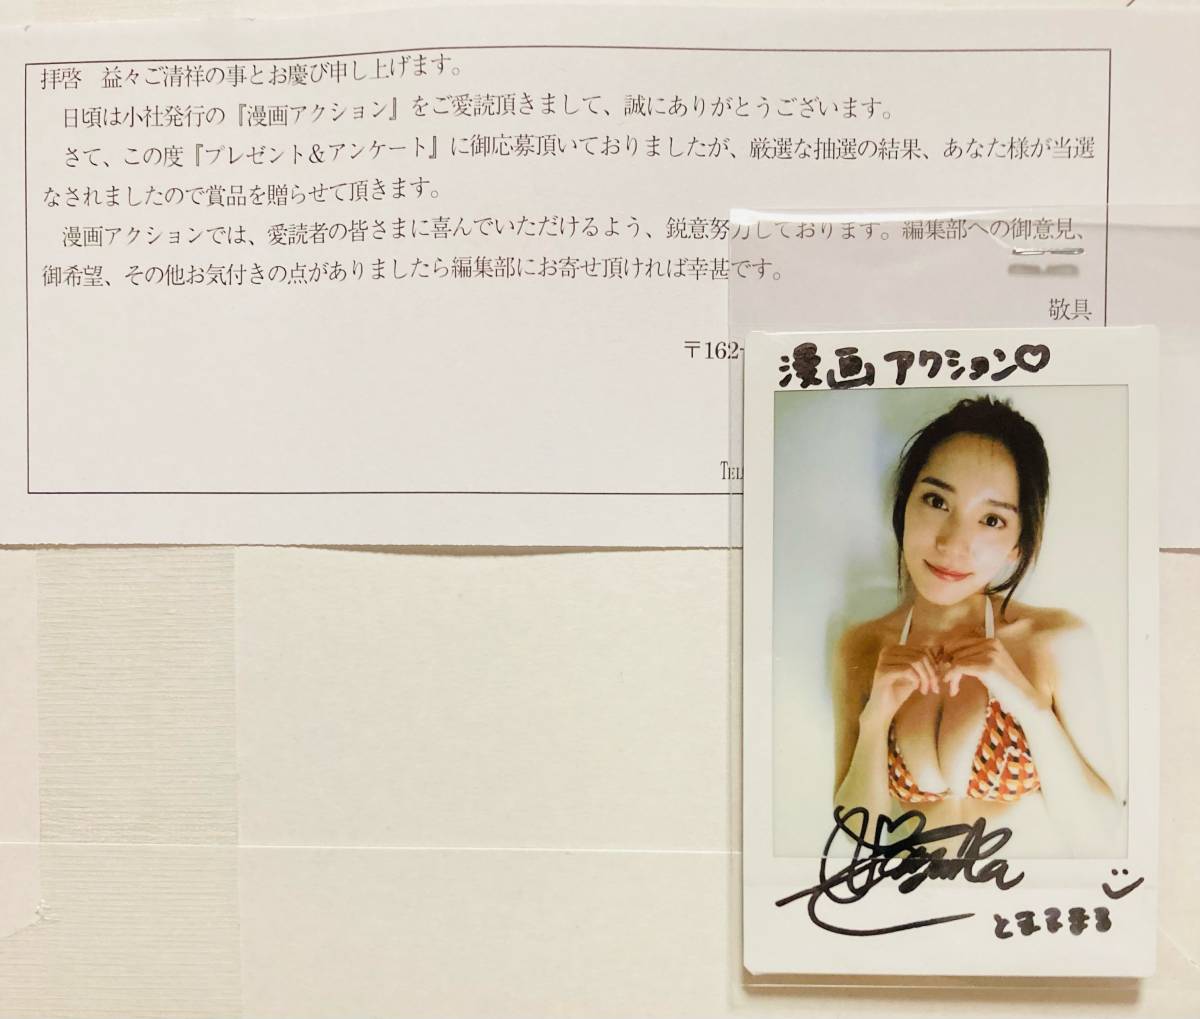 拝啓　益々ご清祥の事とお慶び申し上げます。
日頃は小社発行の『漫画アクション』をご愛読頂きまして、誠にありがとうございます。
さて、この度『プレゼント＆アンケート』に御応募頂いておりましたが、厳選な抽選の結果、あなた様が当選
なされましたので賞品を贈らせて頂きます。
漫画アクションでは、愛読者の皆さまに喜んでいただけるよう、鋭意努力しております。編集部への御意見、
御希望、その他お気付きの点がありましたら編集部にお寄せ頂ければ幸甚です。
敬具
〒162-
TEL
漫画アクション♡
とまるまる